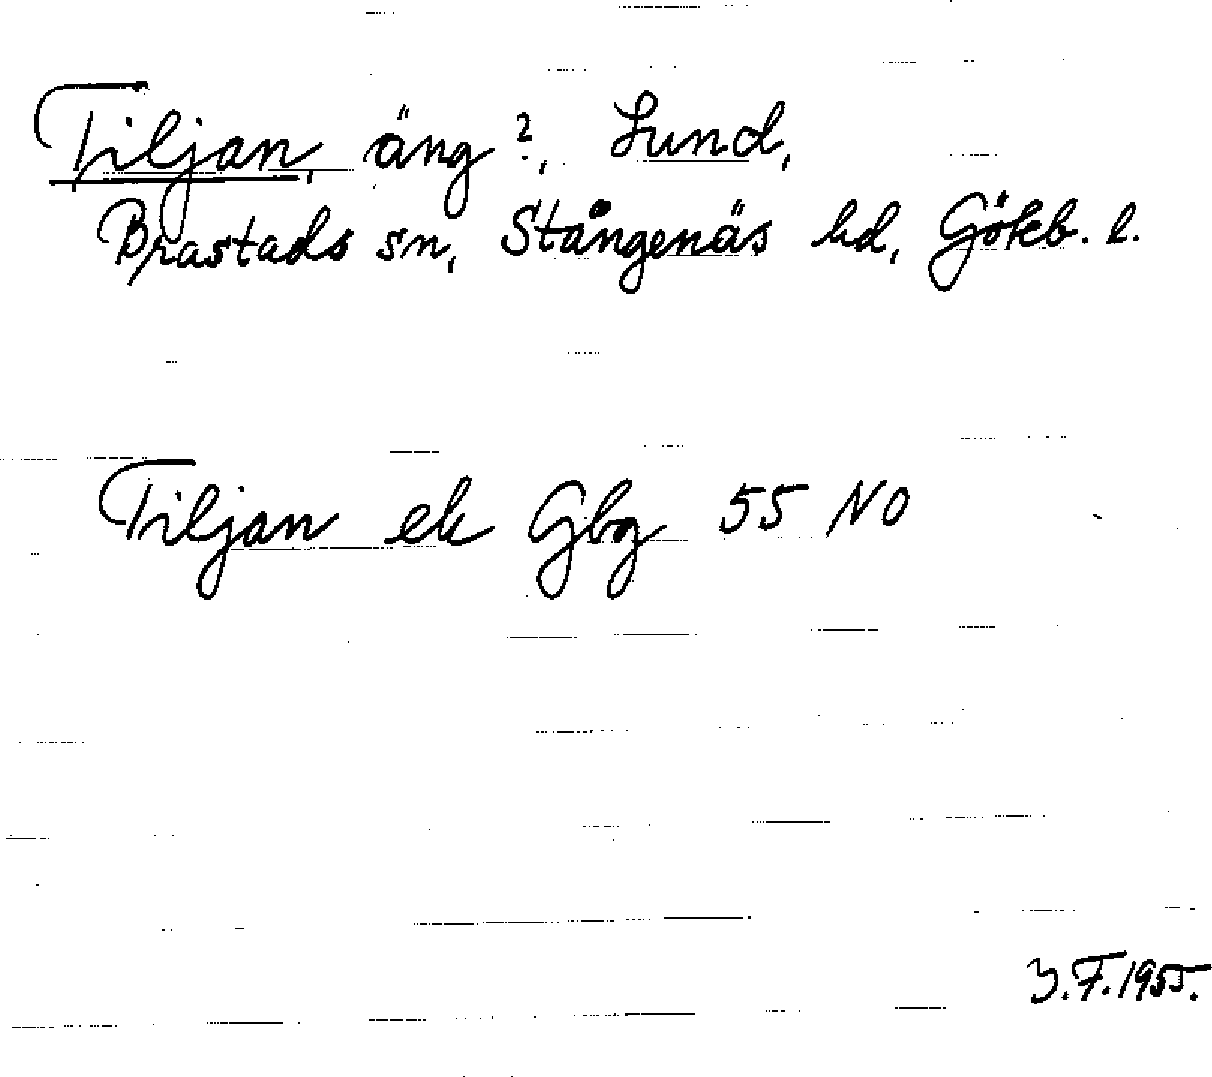 Tiljan, äng?, Lund,
Brastads sn, Stångenäs hd, Gökb. l.
Tiljan ek Gbg 55 NO
J.F. 1955.